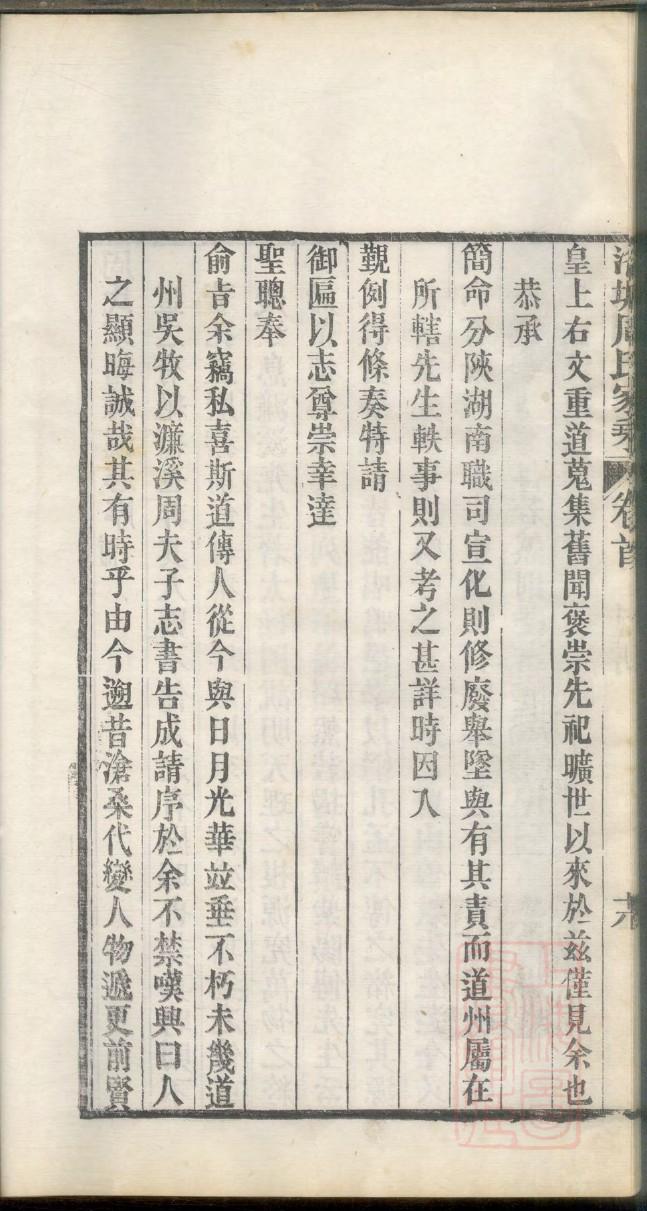 周氏家乘 卷首
皇上右文重道蒐集舊聞褒崇先祀曠世以來於兹僅見余也
恭承
簡命分陝湖南職司宣化則修廢舉墜與有其責而道州屬在
所轄先生軼事則又考之甚詳時因入
覲例得條奏特請
御匾以志尊崇幸達
聖聰奉
俞旨余竊私喜斯道傳人從今與日月光華竝垂不朽未幾道
州吳牧以濂溪周夫子志書告成請序於余不禁嘆興曰人
之顯晦誠哉其有時乎由今遡昔滄桑代變人物遞更前賢